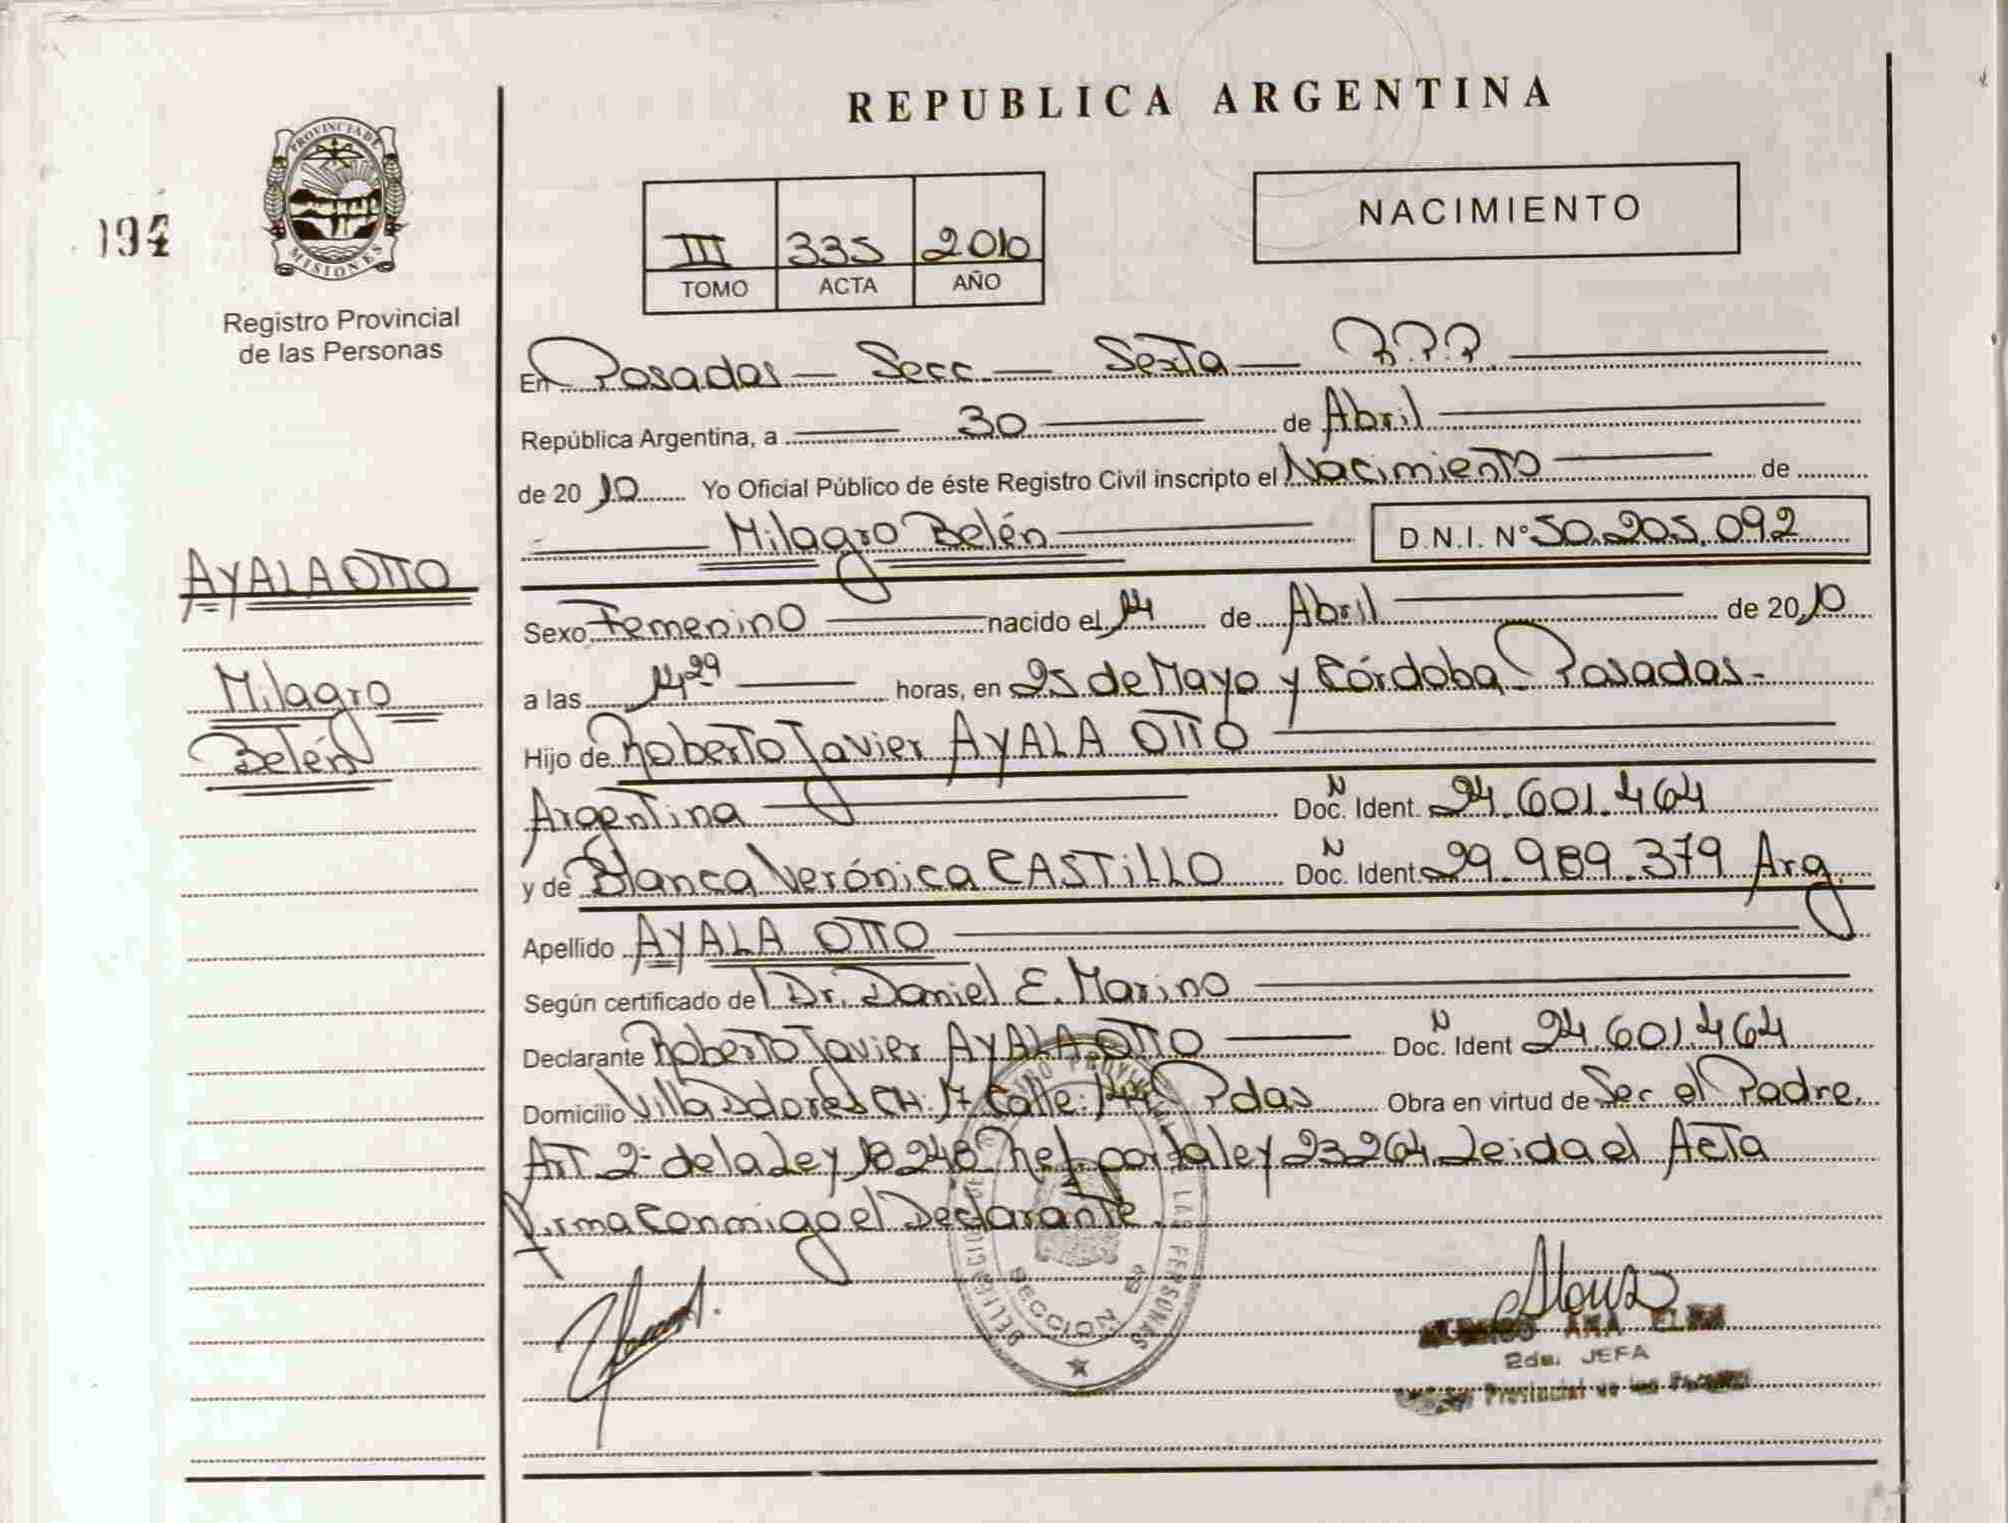 REPUBLICA ARGENTINA
PROVINCIA DE
MISIONES
194
Registro Provincial
de las Personas
III 335 2010
TOMO ACTA AÑO
NACIMIENTO
En Posadas — Secc — Sexta — R.P.P.
República Argentina, a 30 de Abril
de 2010 Yo Oficial Público de éste Registro Civil inscripto el Nacimiento de
Milagro Belén D.N.I. Nº 50.205.092
AYALA OTTO
Milagro
Belén
Sexo Femenino nacido el 14 de Abril de 2010
a las 14 29 horas, en 25 de Mayo y Córdoba - Posadas -
Hijo de Roberto Javier AYALA OTTO
Argentina Doc. N Ident. 24.601.464
y de Blanca Verónica CASTILLO Doc. N Ident. 29.989.379 Arg.
Apellido AYALA OTTO
Según certificado del Dr. Daniel E. Marino
Declarante Roberto Javier AYALA OTTO Doc. N Ident 24.601.464
Domicilio Villa Dolores CH: 17 Calle: 144 Pdas Obra en virtud de Ser el Padre.
Art 2- de la Ley 18248 Ref. por la ley 23264 Leida el Acta
Firma Conmigo el Declarante.
SECCION 6ª
LAS PERSONAS
ANA ELBA
2da. JEFA
Provincial de las